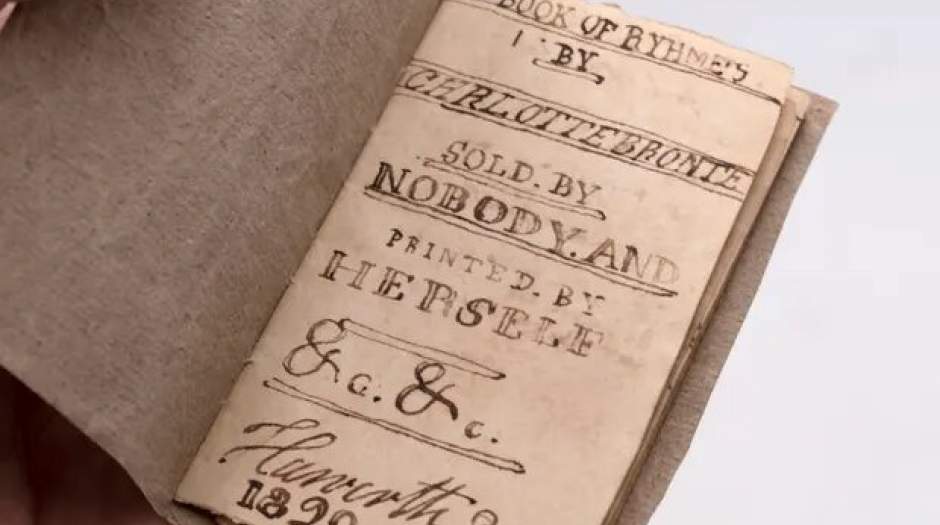 BOOK OF RYHMES
BY
CHARLOTTE BRONTE
SOLD. BY
NOBODY. AND
PRINTED. BY
HERSELF
&c. &c.
Haworth